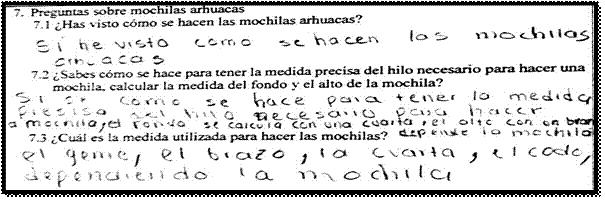 7. Preguntas sobre mochilas arhuacas
7.1 ¿Has visto cómo se hacen las mochilas arhuacas?
Sí he visto como se hacen las mochilas
arhuacas
7.2 ¿Sabes cómo se hace para tener la medida precisa del hilo necesario para hacer una
mochila, calcular la medida del fondo y el alto de la mochila?
Si se como se hace para tener la medida
precisa del hilo necesario para hacer
a mochila, el fondo se calcula con una cuarta y el alto con un
7.3 ¿Cuál es la medida utilizada para hacer las mochilas? depende la mochila
el geme, el brazo, la cuarta, el codo,
dependiendo la mochila